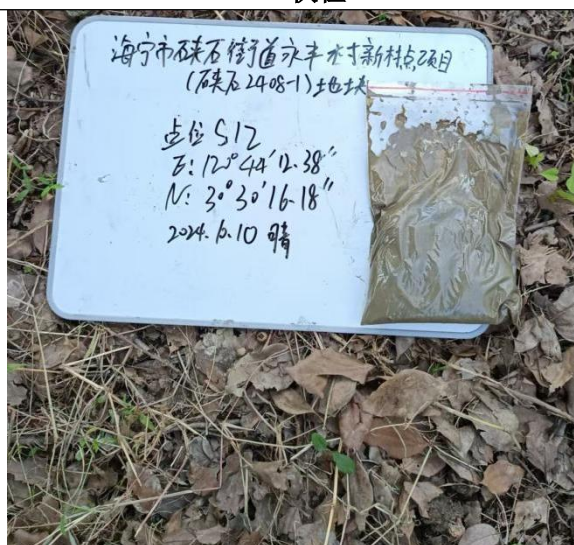 海宁市硖石街道永丰村新村点项目
(硖石2408-1)地块
点位 S12
E: 12°44′12.38″
N: 3°30′16.18″
2024.6.10 晴